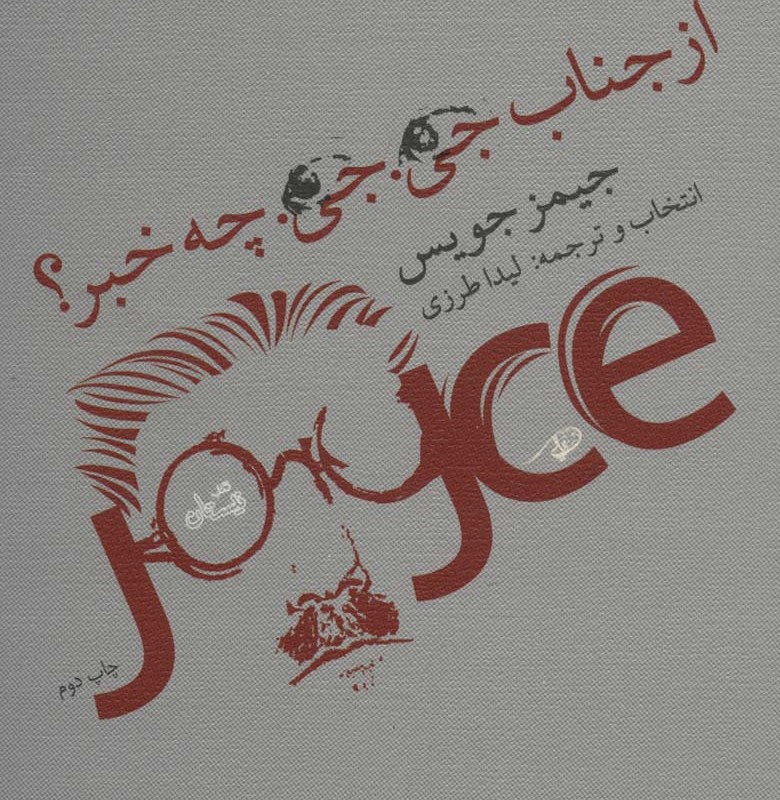 از جناب جی. جی. چه خبر؟
جیمز جویس
انتخاب و ترجمه: لیدا طرزی
Joyce
چاپ دوم